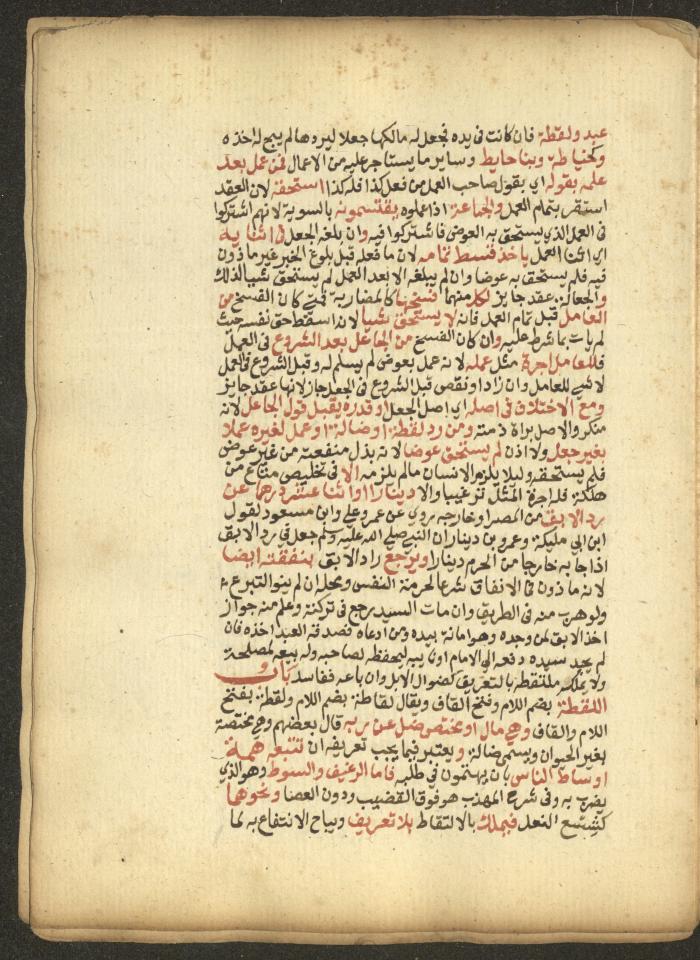 عبد ولقطة فان كانت في يده فجعل له مالكها جعلا ليردها لم يبح له اخذه
وكخياطة وبنا حايط وساير ما يستاجر عليه من الاعمال فمن عمل بعد
علمه بقوله اي بقول صاحب العمل من فعل كذا فله كذا استحقه لان العقد
استقر بتمام العمل والجماعة اذا عملوه يقتسمونه بالسوية لانهم اشتركوا
في العمل الذي يستحق به العوض فاشتركوا فيه وان بلغه الجعل في اثنايه
اي اثنا العمل ياخذ قسط تمامه لان ما فعله قبل بلوغ الخبر غير ماذون
فيه فلم يستحق به عوضا وان لم يبلغه الا بعد العمل لم يستحق شيا لذلك
والجعالة عقد جايز لكل منهما فسخها كالمضاربة فمتى كان الفسخ من
العامل قبل تمام العمل فانه لا يستحق شيا لانه اسقط حق نفسه حيث
لم يات بما شرط عليه وان كان الفسخ من الجاعل بعد الشروع في العمل
فللعامل اجرة مثل عمله لانه عمل بعوض لم يسلم له وقبل الشروع في العمل
لا شي للعامل وان زاد او نقص قبل الشروع في الجعل جاز لانها عقد جايز
ومع الاختلاف في اصله اي اصل الجعل او قدره يقبل قول الجاعل لانه
منكر والاصل براة ذمته ومن رد لقطة او ضالة او عمل لغيره عملا
بغير جعل ولا اذن لم يستحق عوضا لانه بذل منفعته من غير عوض
فلم يستحقه وليلا يلزم الانسان مالم يلزمه الا في تخليص متاع من
هلكة فله اجرة المثل ترغيبا والا دينارا او اثنا عشر درهما عن
رد الابق من المصر او خارجه روي عن عمر وعلي وابن مسعود لقول
ابن ابي مليكة وعمرو بن دينار ان النبي صلى الله عليه ولم جعل في رد الابق
اذا جا به خارجا من الحرم دينارا ويرجع راد الابق بنفقته ايضا
لانه ماذون في الانفاق شرعا لحرمة النفس ومحله ان لم ينو التبرع
ولو هرب منه في الطريق وان مات السيد رجع في تركته وعلم منه جواز
اخذ الابق لمن وجده وهو امانة بيده ومن ادعاه فصدقه العبد اخذه فان
لم يجد سيده دفعه الى الامام او نايبه ليحفظه لصاحبه وله بيعه لمصلحة
ولا يملكه ملتقطه بالتعريف كضوال الابل وان باعه ففاسد باب
اللقطة بضم اللام وفتح القاف ويقال لقاطة بضم اللام ولقطة بفتح
اللام والقاف وهي مال او مختص ضل عن ربه قال بعضهم وهي مختصة
بغير الحيوان ويسمى ضالة ويعتبر فيما يجب تعريفه ان تتبعه همة
اوساط الناس بان يهتمون في طلبه فاما الرغيف والسوط وهو الذي
يضرب به وفي شرح المهذب هو فوق القضيب ودون العصا ونحوهما
كشسع النعل فيملك بالالتقاط بلا تعريف ويباح الانتفاع به لما